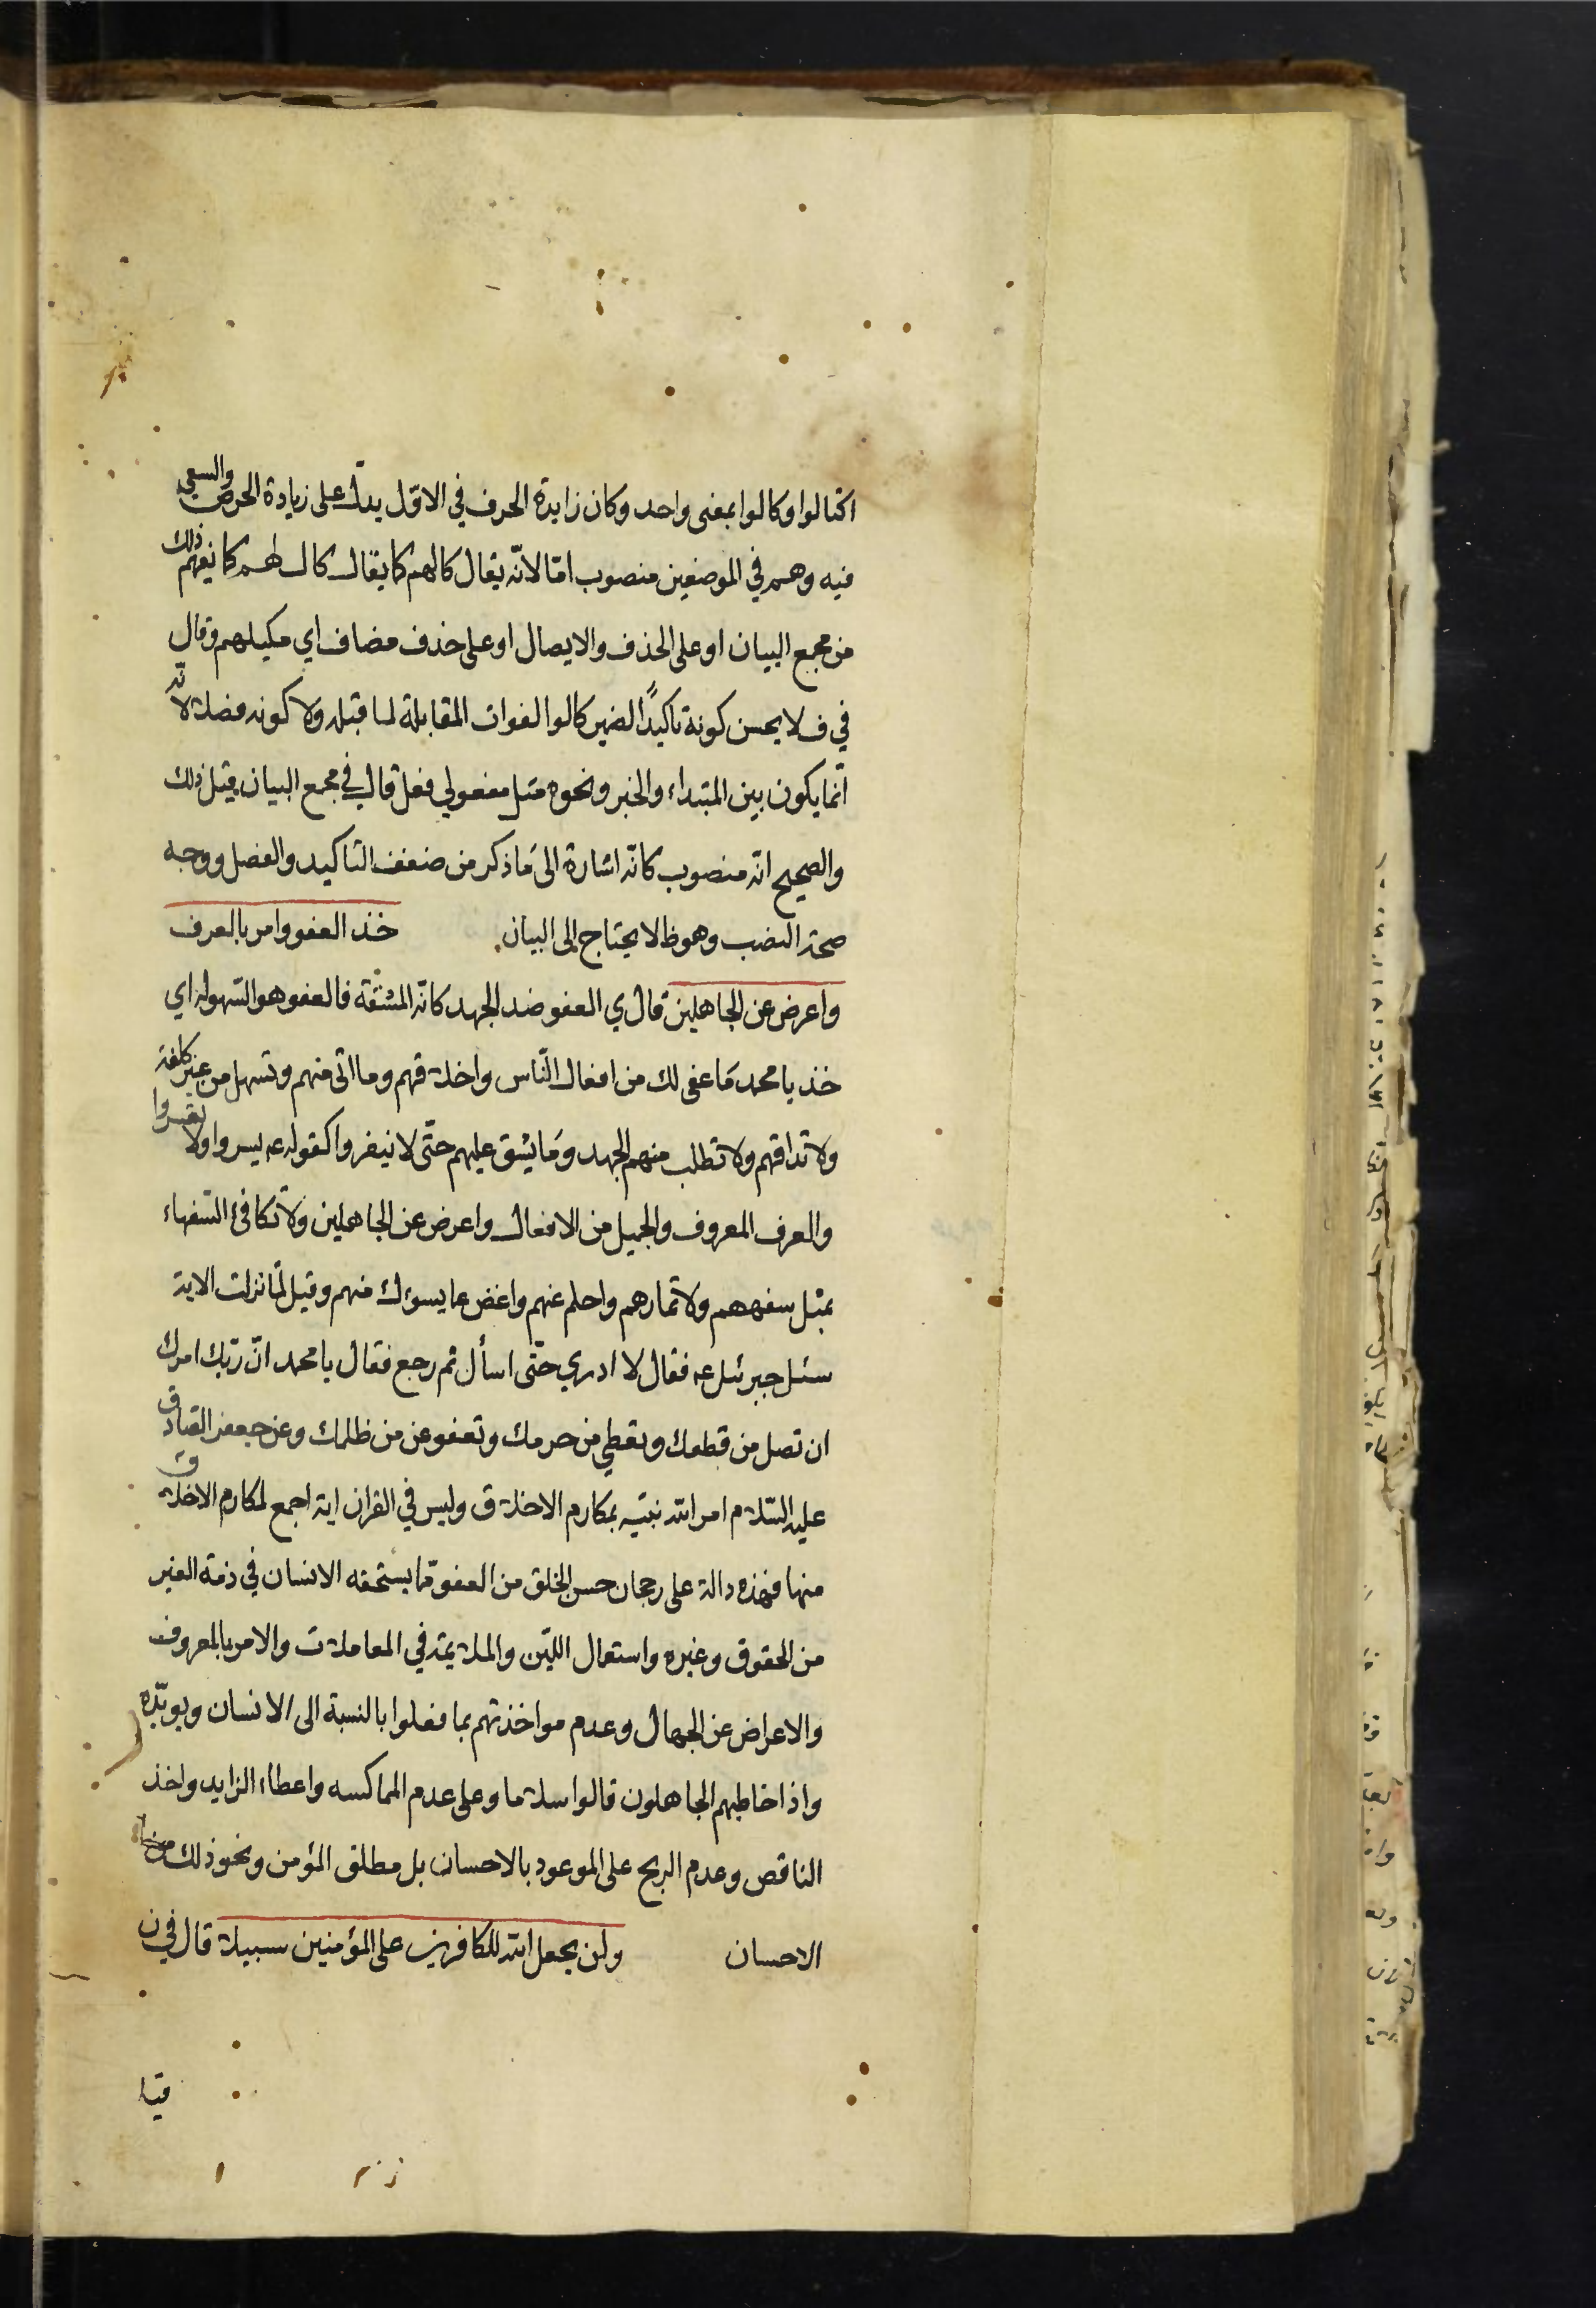 اكتالوا وكالوا بمعنى واحد وكان زايدة الحرف في الاوّل يدلّ على زيادة الحرص والسعي
فيه وهم في الموضعين منصوب امّا لانّه يقال كالهم كما يقال كال لهم كما يفهم ذلك
من مجمع البيان او على الحذف والايصال او على حذف مضاف اي مكيلهم وقال
في ف لا يحسن كونة تاكيدًا لضمير كالوا لفوات المقابلة لما قبله ولا كونه فصلا لانّه
انّما يكون بين المبتداء والخبر ونحوه مثل مفعولي فعل قال في مجمع البيان قيل ذلك
والصحيح انّه منصوب كانّه اشارة الى ما ذكر من ضعف التاكيد والفصل ووجه
صحة النصب وهو ظ لا يحتاج الى البيان. خذ العفو وامر بالعرف
واعرض عن الجاهلين قال ي العفو ضد الجهد كانّه المشقة فالعفو هو السّهولة اي
خذ يا محمد ما عفى لك من افعال النّاس واخلاقهم وما اتى منهم وتسهل من غير كلفة
ولا تداقهم ولا تطلب منهم الجهد وما يشق عليهم حتّى لا ينفروا كقوله ع يسروا ولا تعسروا
والعرف المعروف والجميل من الافعال واعرض عن الجاهلين ولا تكافئ السّفهاء
بمثل سفههم ولا تمارهم واحلم عنهم واغض عما يسوءك منهم وقيل لمّا نزلت الاية
سئل جبرئل ع فقال لا ادري حتّى اسأل ثم رجع فقال يا محمد انّ ربّك امرك
ان تصل من قطعك وتعطي من حرمك وتعفو عن من ظلمك وعن جعفر الصادق
عليه السّلام امر الله نبيّه بمكارم الاخلاق وليس في القران اية اجمع لمكارم الاخلاق
منها فهذه دالة على رجحان حسن الخلق من العفو عما يستحقه الانسان في ذمة الغير
من الحقوق وغيره واستعمال اللّين والملايمة في المعاملات والامر بالمعروف
والاعراض عن الجهال وعدم مواخذتهم بما فعلوا بالنسبة الى الانسان ويويّده
واذا خاطبهم الجاهلون قالوا سلاما وعلى عدم المماكسه واعطاء الزايد واخذ
الناقص وعدم الربح على الموعود بالاحسان بل مطلق المؤمن ونحو ذلك من
الاحسان ولن يجعل الله للكافرين على المؤمنين سبيلا قال في ن